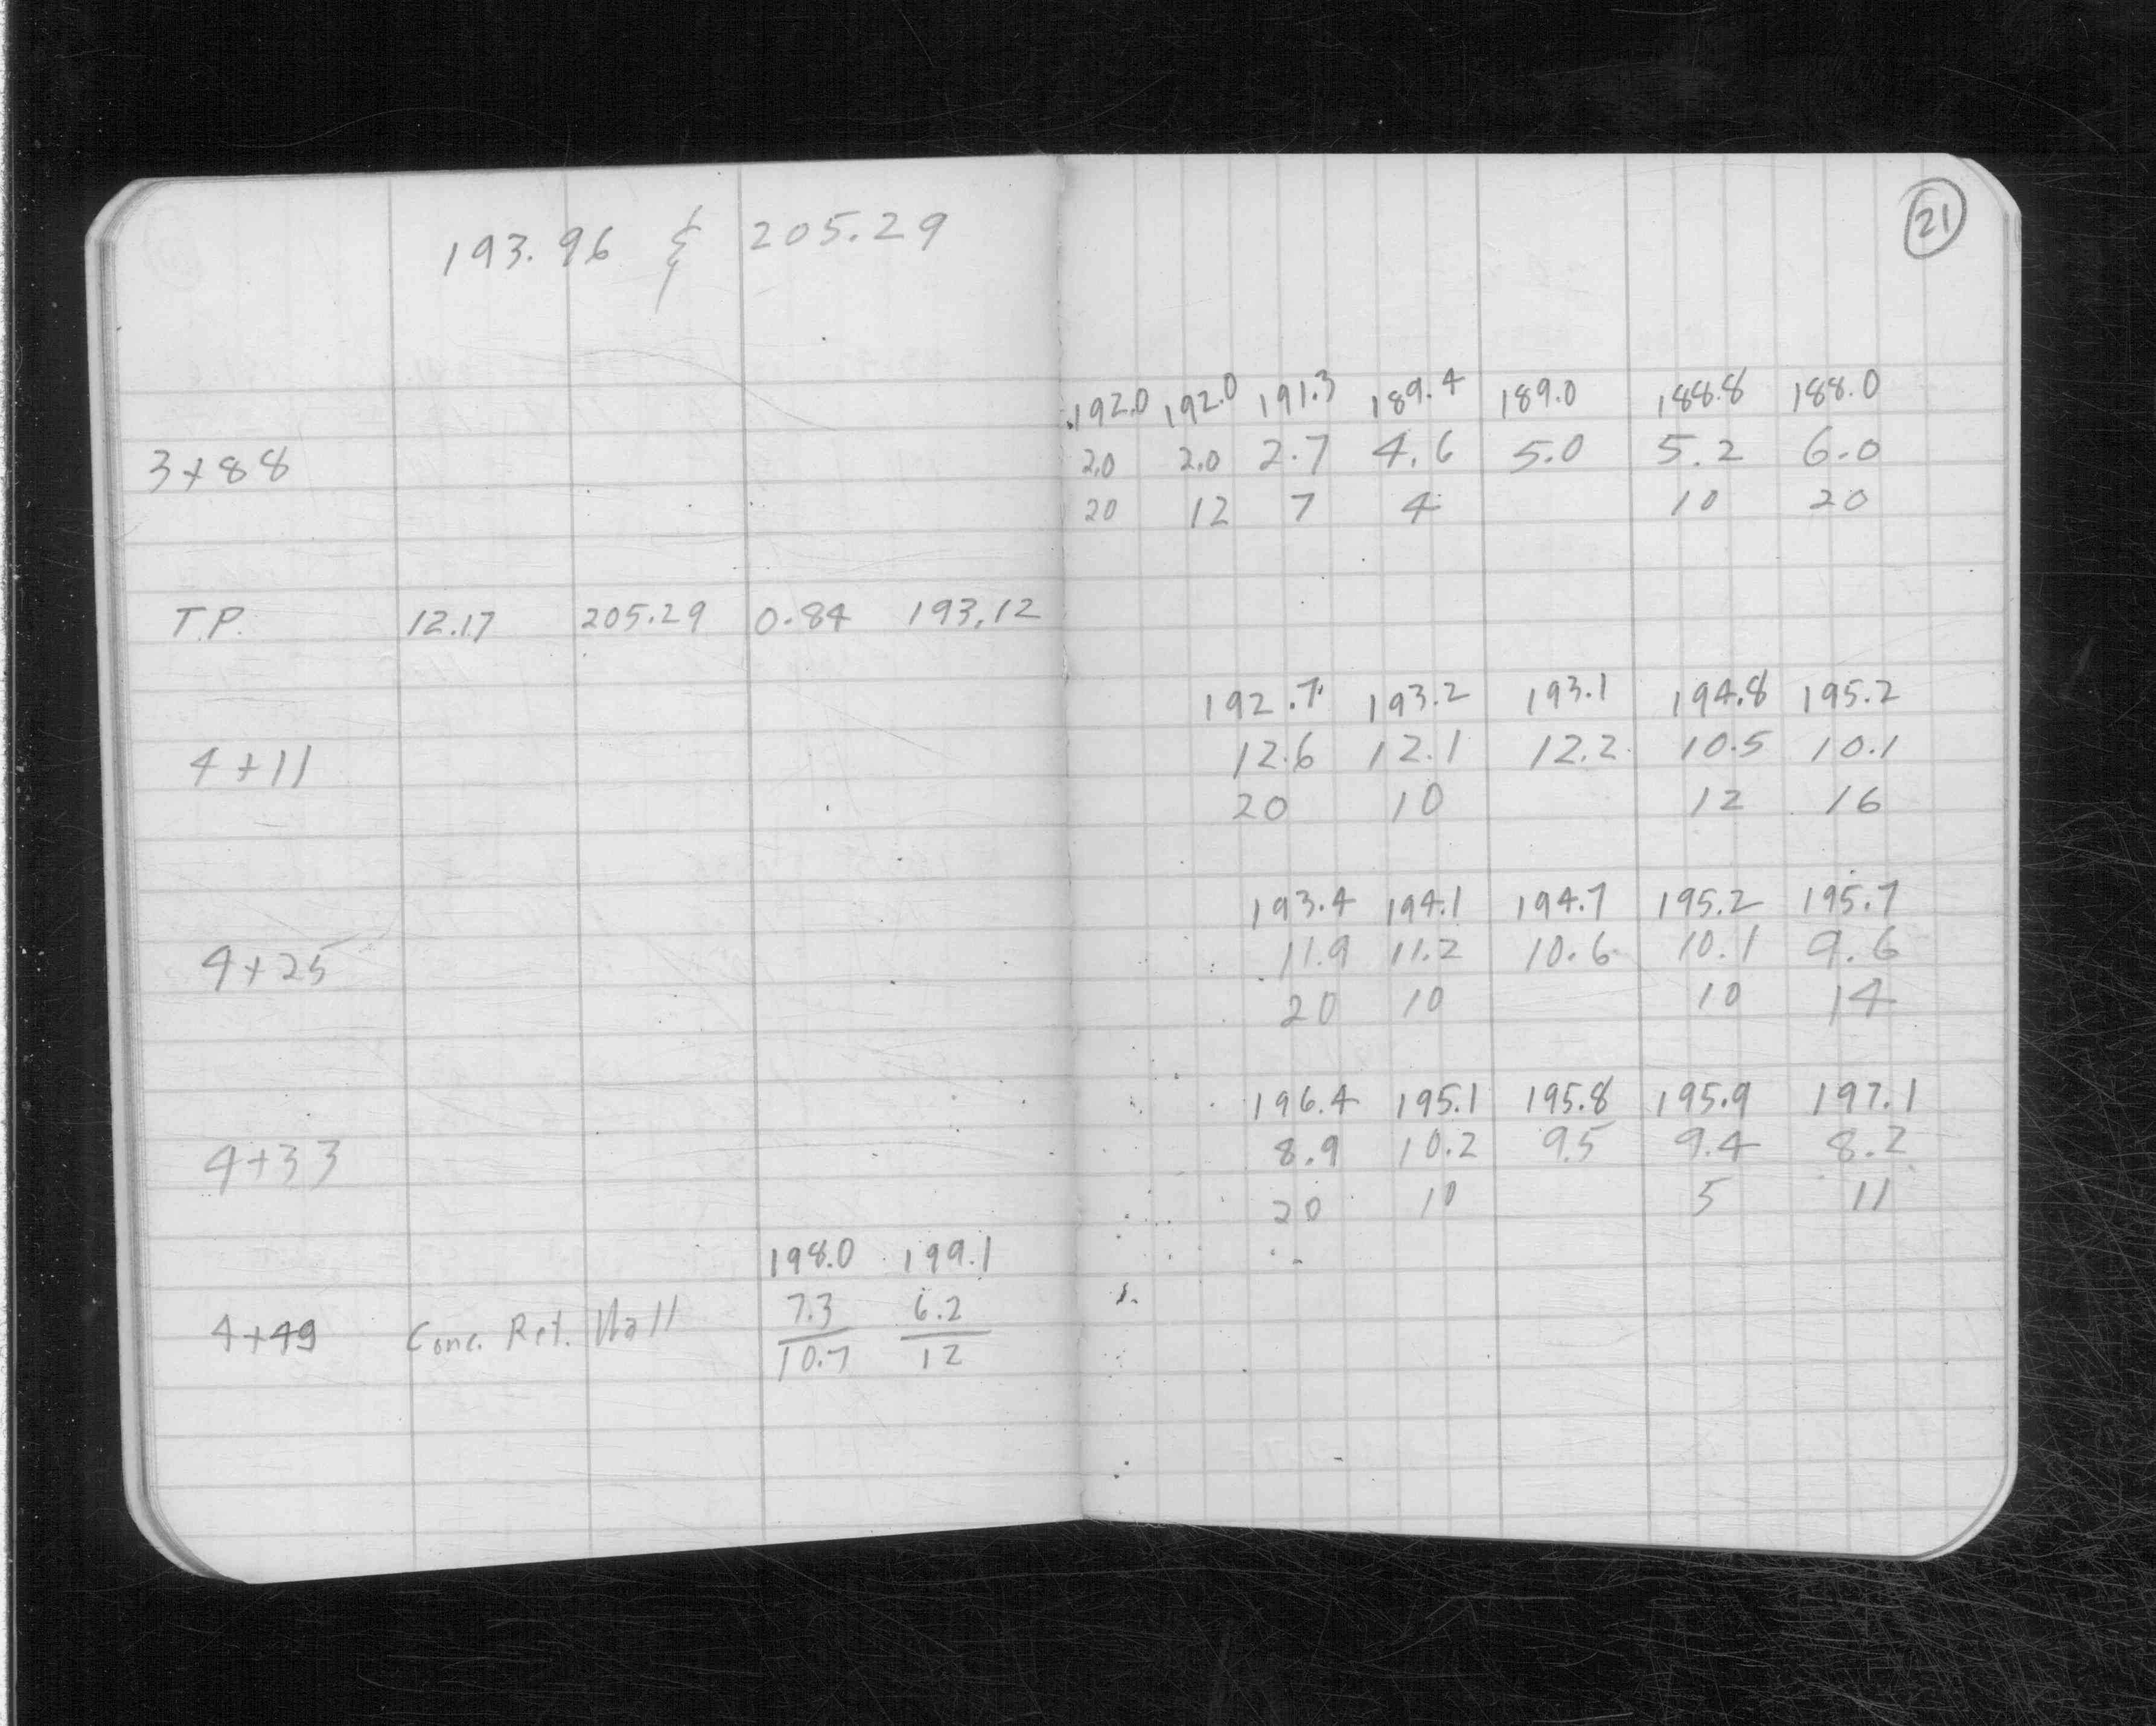 193.96 & 205.29
21
192.0 192.0 191.3 189.4 189.0 188.8 188.0
3+88 2.0 2.0 2.7 4.6 5.0 5.2 6.0
20 12 7 4 10 20
T.P. 12.17 205.29 0.84 193.12
192.7 193.2 193.1 194.8 195.2
4+11 12.6 12.1 12.2 10.5 10.1
20 10 12 16
193.4 194.1 194.7 195.2 195.7
4+25 11.9 11.2 10.6 10.1 9.6
20 10 10 14
196.4 195.1 195.8 195.9 197.1
4+33 8.9 10.2 9.5 9.4 8.2
20 10 5 11
198.0 199.1
7.3 6.2
4+49 Conc. Ret. Wall
10.7 12